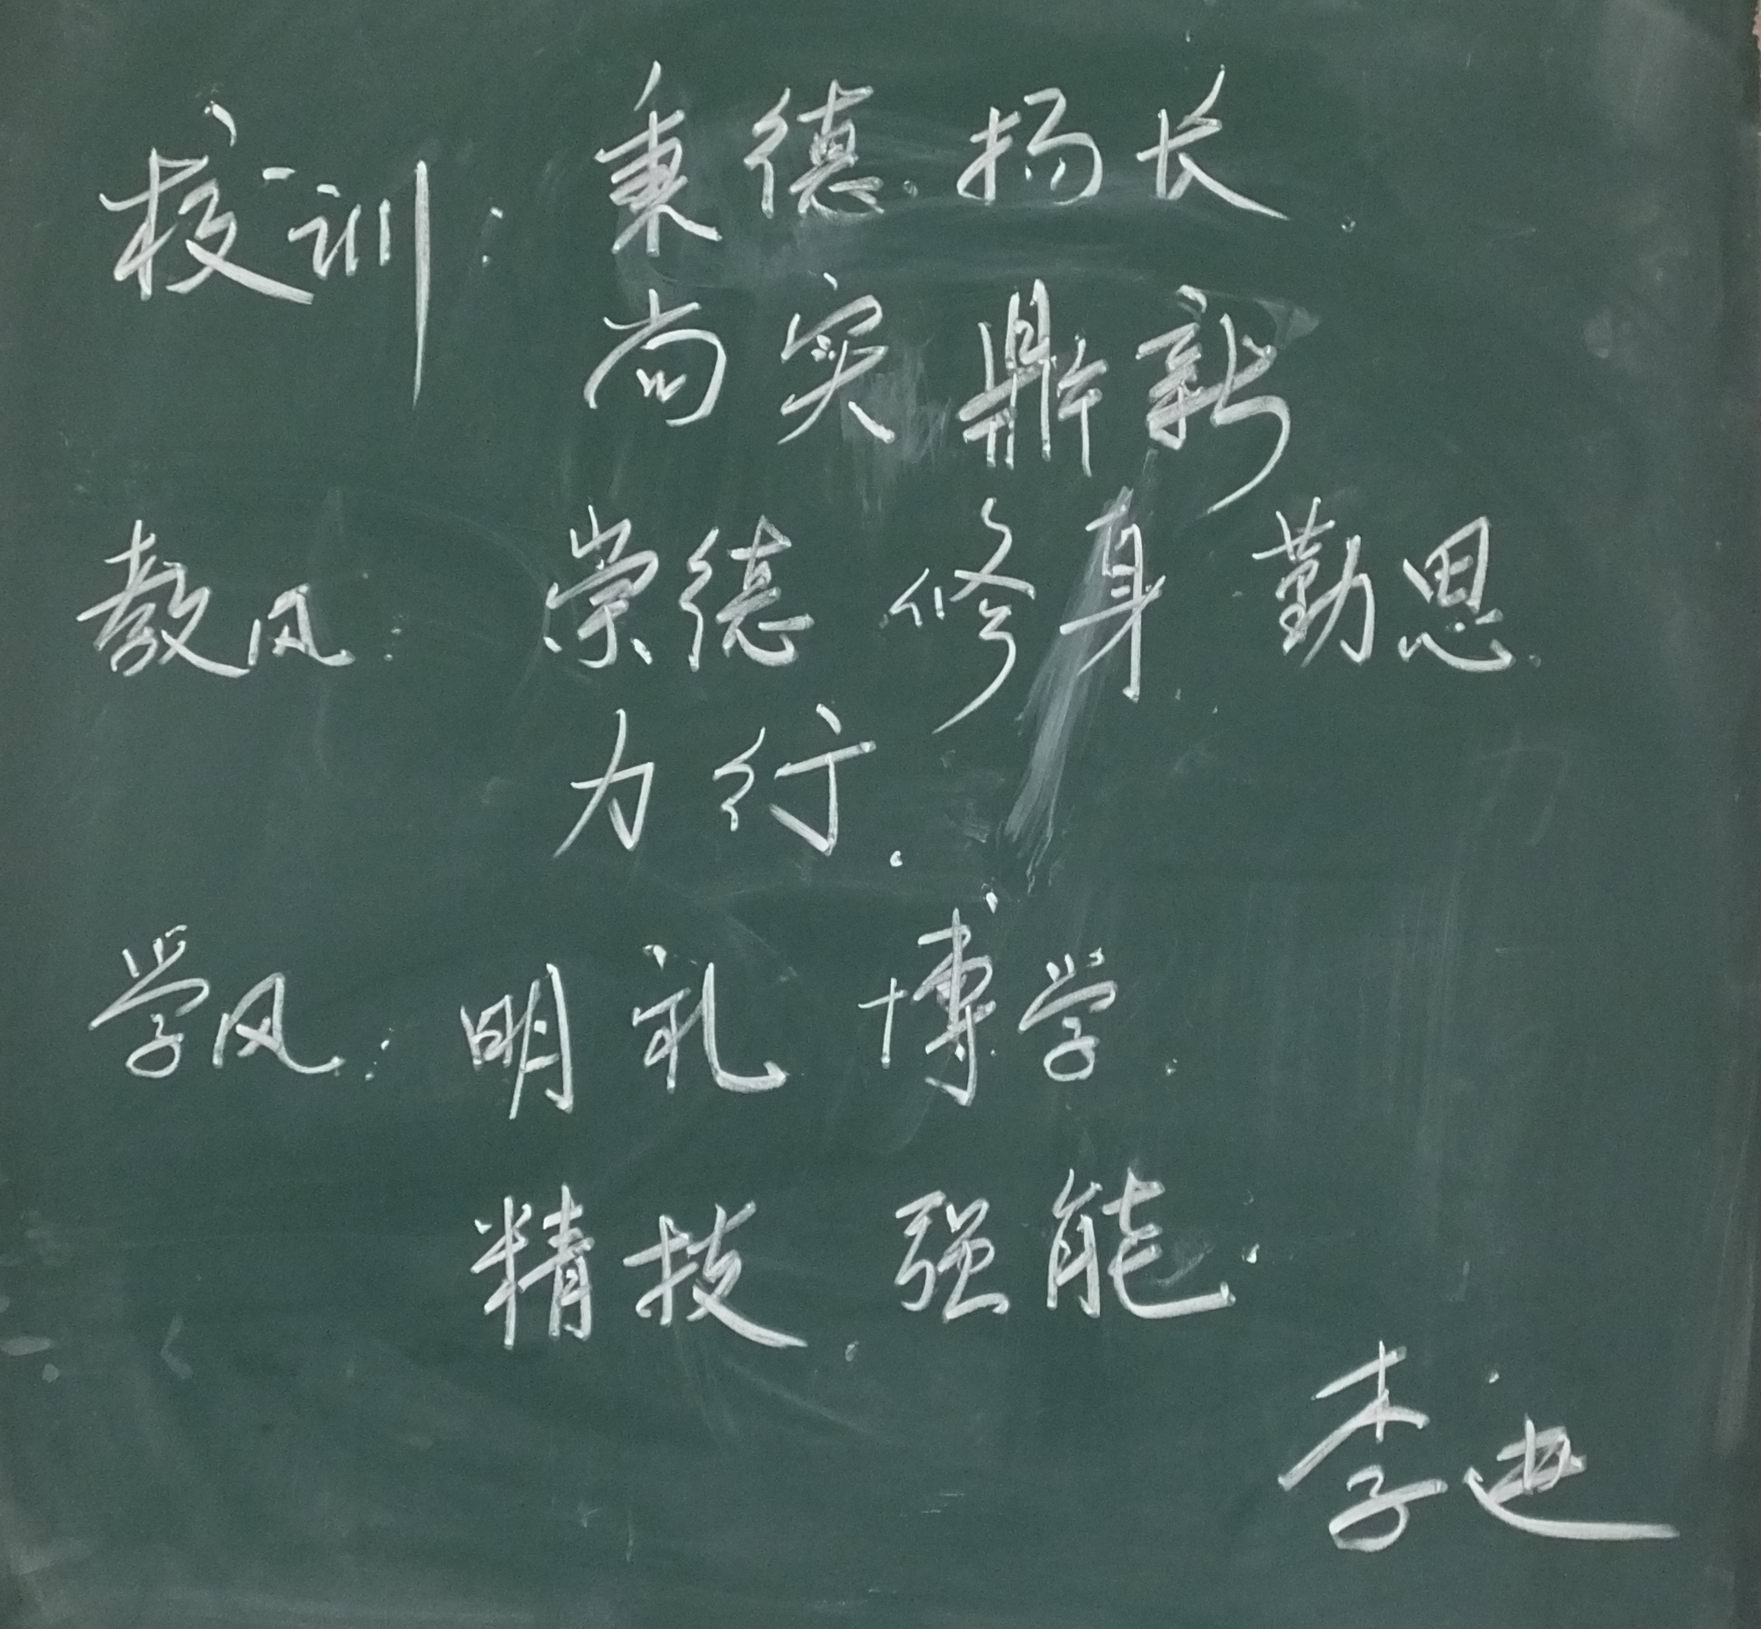 校训: 秉德.扬长.
尚实鼎新
教风: 崇德 修身 勤思.
力行.
学风: 明礼 博学.
精技.强能.
李迪